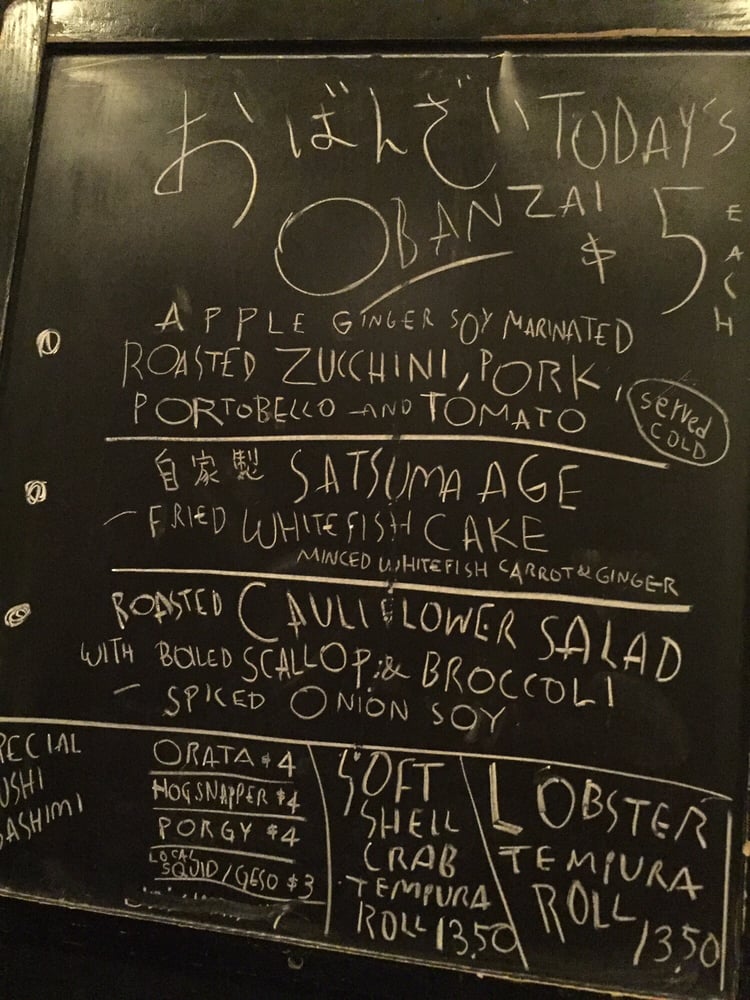 おばんざい TODAY'S
OBANZAI $5 EACH
APPLE GINGER SOY MARINATED
ROASTED ZUCCHINI, PORK,
PORTOBELLO AND TOMATO
served
COLD
自家製 SATSUMA AGE
- FRIED WHITEFISH CAKE
MINCED WHITEFISH CARROT & GINGER
ROASTED CAULIFLOWER SALAD
WITH BOILED SCALLOP & BROCCOLI
- SPICED ONION SOY
PECIAL
USHI
SASHIMI
ORATA $4
HOGSNAPPER $4
PORGY $4
LOCAL
SQUID/GESO $3
SOFT
SHELL
CRAB
TEMPURA
ROLL 13.50
LOBSTER
TEMPURA
ROLL
13.50